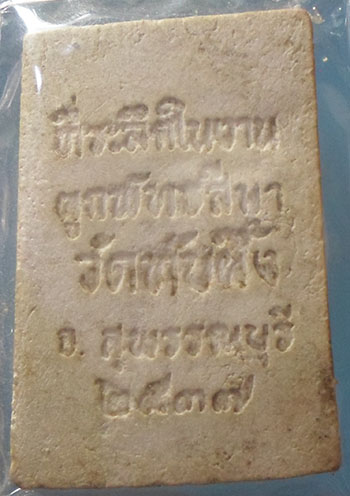 ที่ระลึกในงาน
ผูกพัทธสีมา
วัด
จ. สุพรรณบุรี
๒๕๓๗